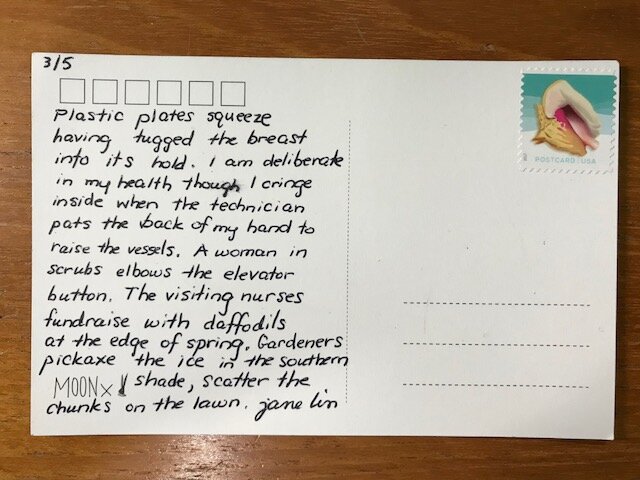 3/5
Plastic plates squeeze
having tugged the breast
into its hold. I am deliberate
in my health though I cringe
inside when the technician
pats the back of my hand to
raise the vessels. A woman in
scrubs elbows the elevator
button. The visiting nurses
fundraise with daffodils
at the edge of spring. Gardeners
pickaxe the ice in the southern
MOON x shade, scatter the
chunks on the lawn. jane lin
POSTCARD USA